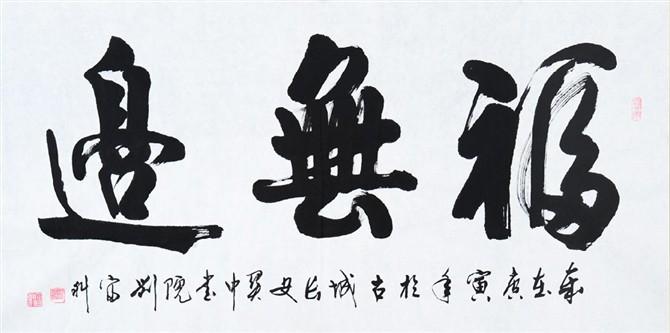 福無邊
歲在庚寅年於古城長安關中書院劉宗科